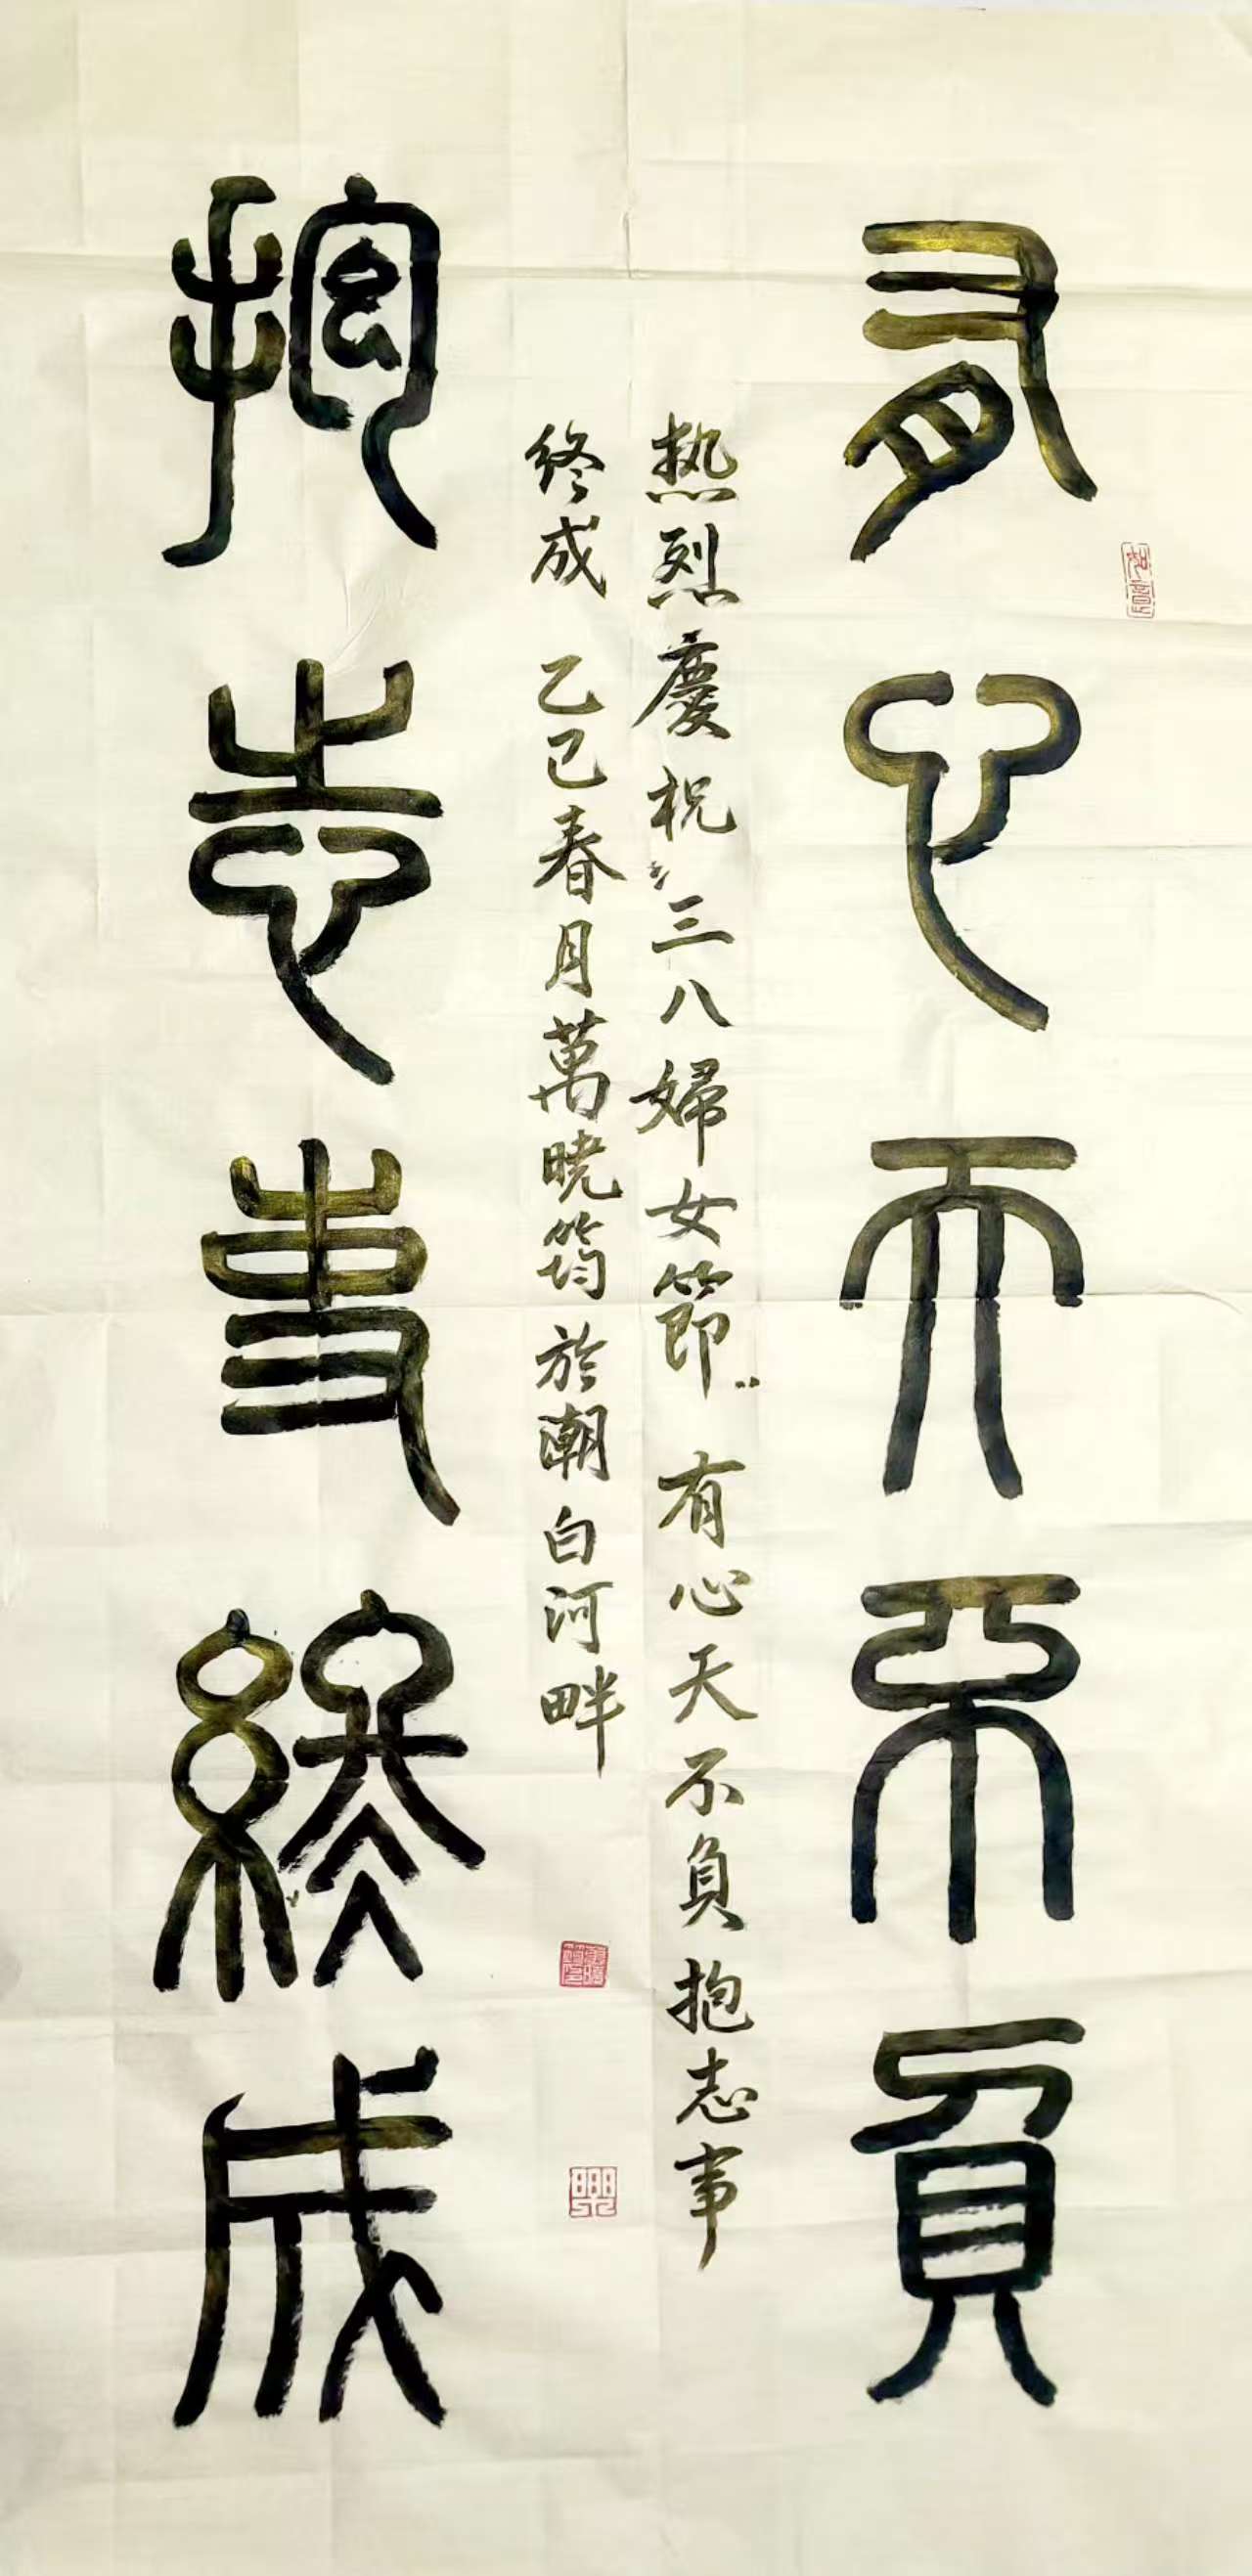 有心天不負
抱志事終成
热烈慶祝"三八婦女節"有心天不負抱志事
終成 乙巳春月萬曉筠於潮白河畔
如意